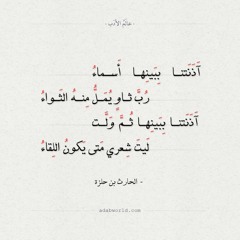 عالم الأدب
آذَنَتنا بِبَينِها أَسماءُ
رُبَّ ثاوٍ يُمَلُّ مِنهُ الثَواءُ
آذَنَتنا بِبَينِها ثُمَّ وَلَّت
لَيتَ شِعري مَتى يَكونُ اللِقاءُ
- الحارث بن حلزة
adabworld.com